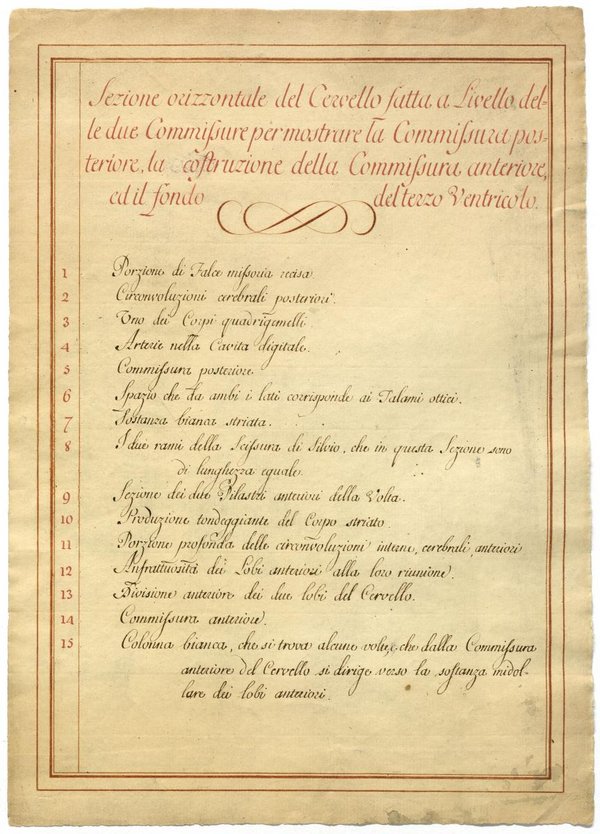 Sezione orizzontale del Cervello fatta a Livello del-
le due Commiſsure per mostrare la Commiſsura pos-
teriore, la coſtruzione della Commiſsura anteriore,
ed il fondo del terzo Ventricolo.
1 Porzione di Falce meſsoria recisa.
2 Circonvoluzioni cerebrali posteriori.
3 Uno dei Corpi quadrigemelli.
4 Arterie nella Cavita digitale.
5 Commiſsura posteriore.
6 Spazio che da ambi i lati corrisponde ai Talami ottici.
7 Sostanza bianca striata.
8 I due rami della Sciſsura di Silvio, che in questa Sezione sono
di lunghezza eguale.
9 Sezione dei due Pilastri anteriori della Volta.
10 Produzione tondeggiante del Corpo striato.
11 Porzione profonda delle circonvoluzioni interne, cerebrali, anteriori
12 Anfrattuosità dei Lobi anteriori alla loro riunione.
13 Divisione anteriore dei due lobi del Cervello.
14 Commiſsura anteriore.
15 Colonna bianca, che si trova alcune volte, che dalla Commiſsura
anteriore del Cervello si dirige verso la soſtanza midol-
lare dei lobi anteriori.